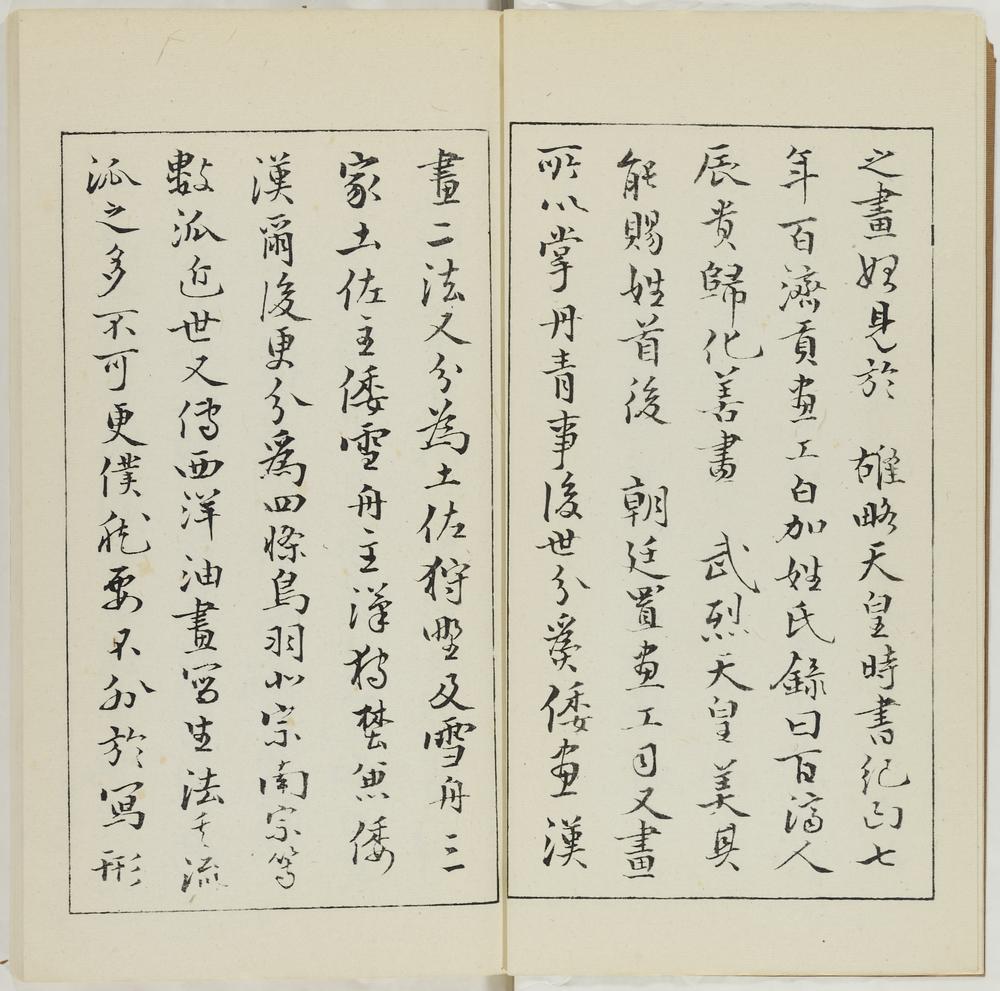 之畫始見於　雄略天皇時書紀曰七
年百濟貢畫工白加姓氏錄曰百濟人
辰貴歸化善畫　武烈天皇美其
能賜姓首後　朝廷置畫工司又畫
所以掌丹青事後世分爲倭畫漢
畫二法又分為土佐狩野及雪舟三
家土佐主倭雪舟主漢狩埜兼倭
漢爾後更分爲四條鳥羽北宗南宗等
數派近世又傳西洋油畫寫生法其流
派之多不可更僕然要不外於寫形